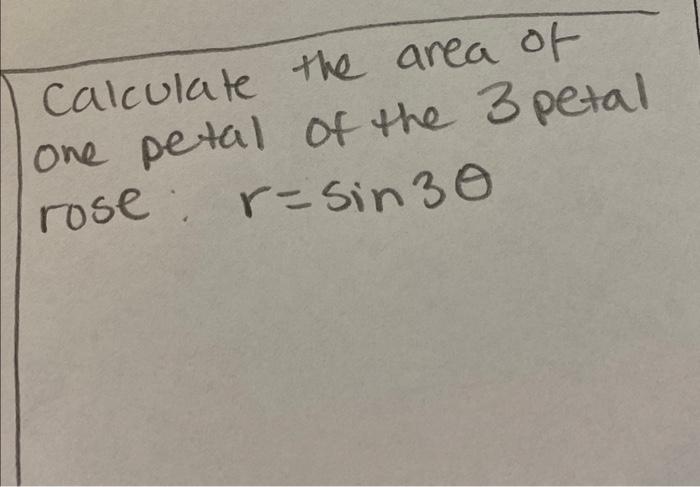 Calculate the area of
one petal of the 3 petal
rose: r=sin3θ